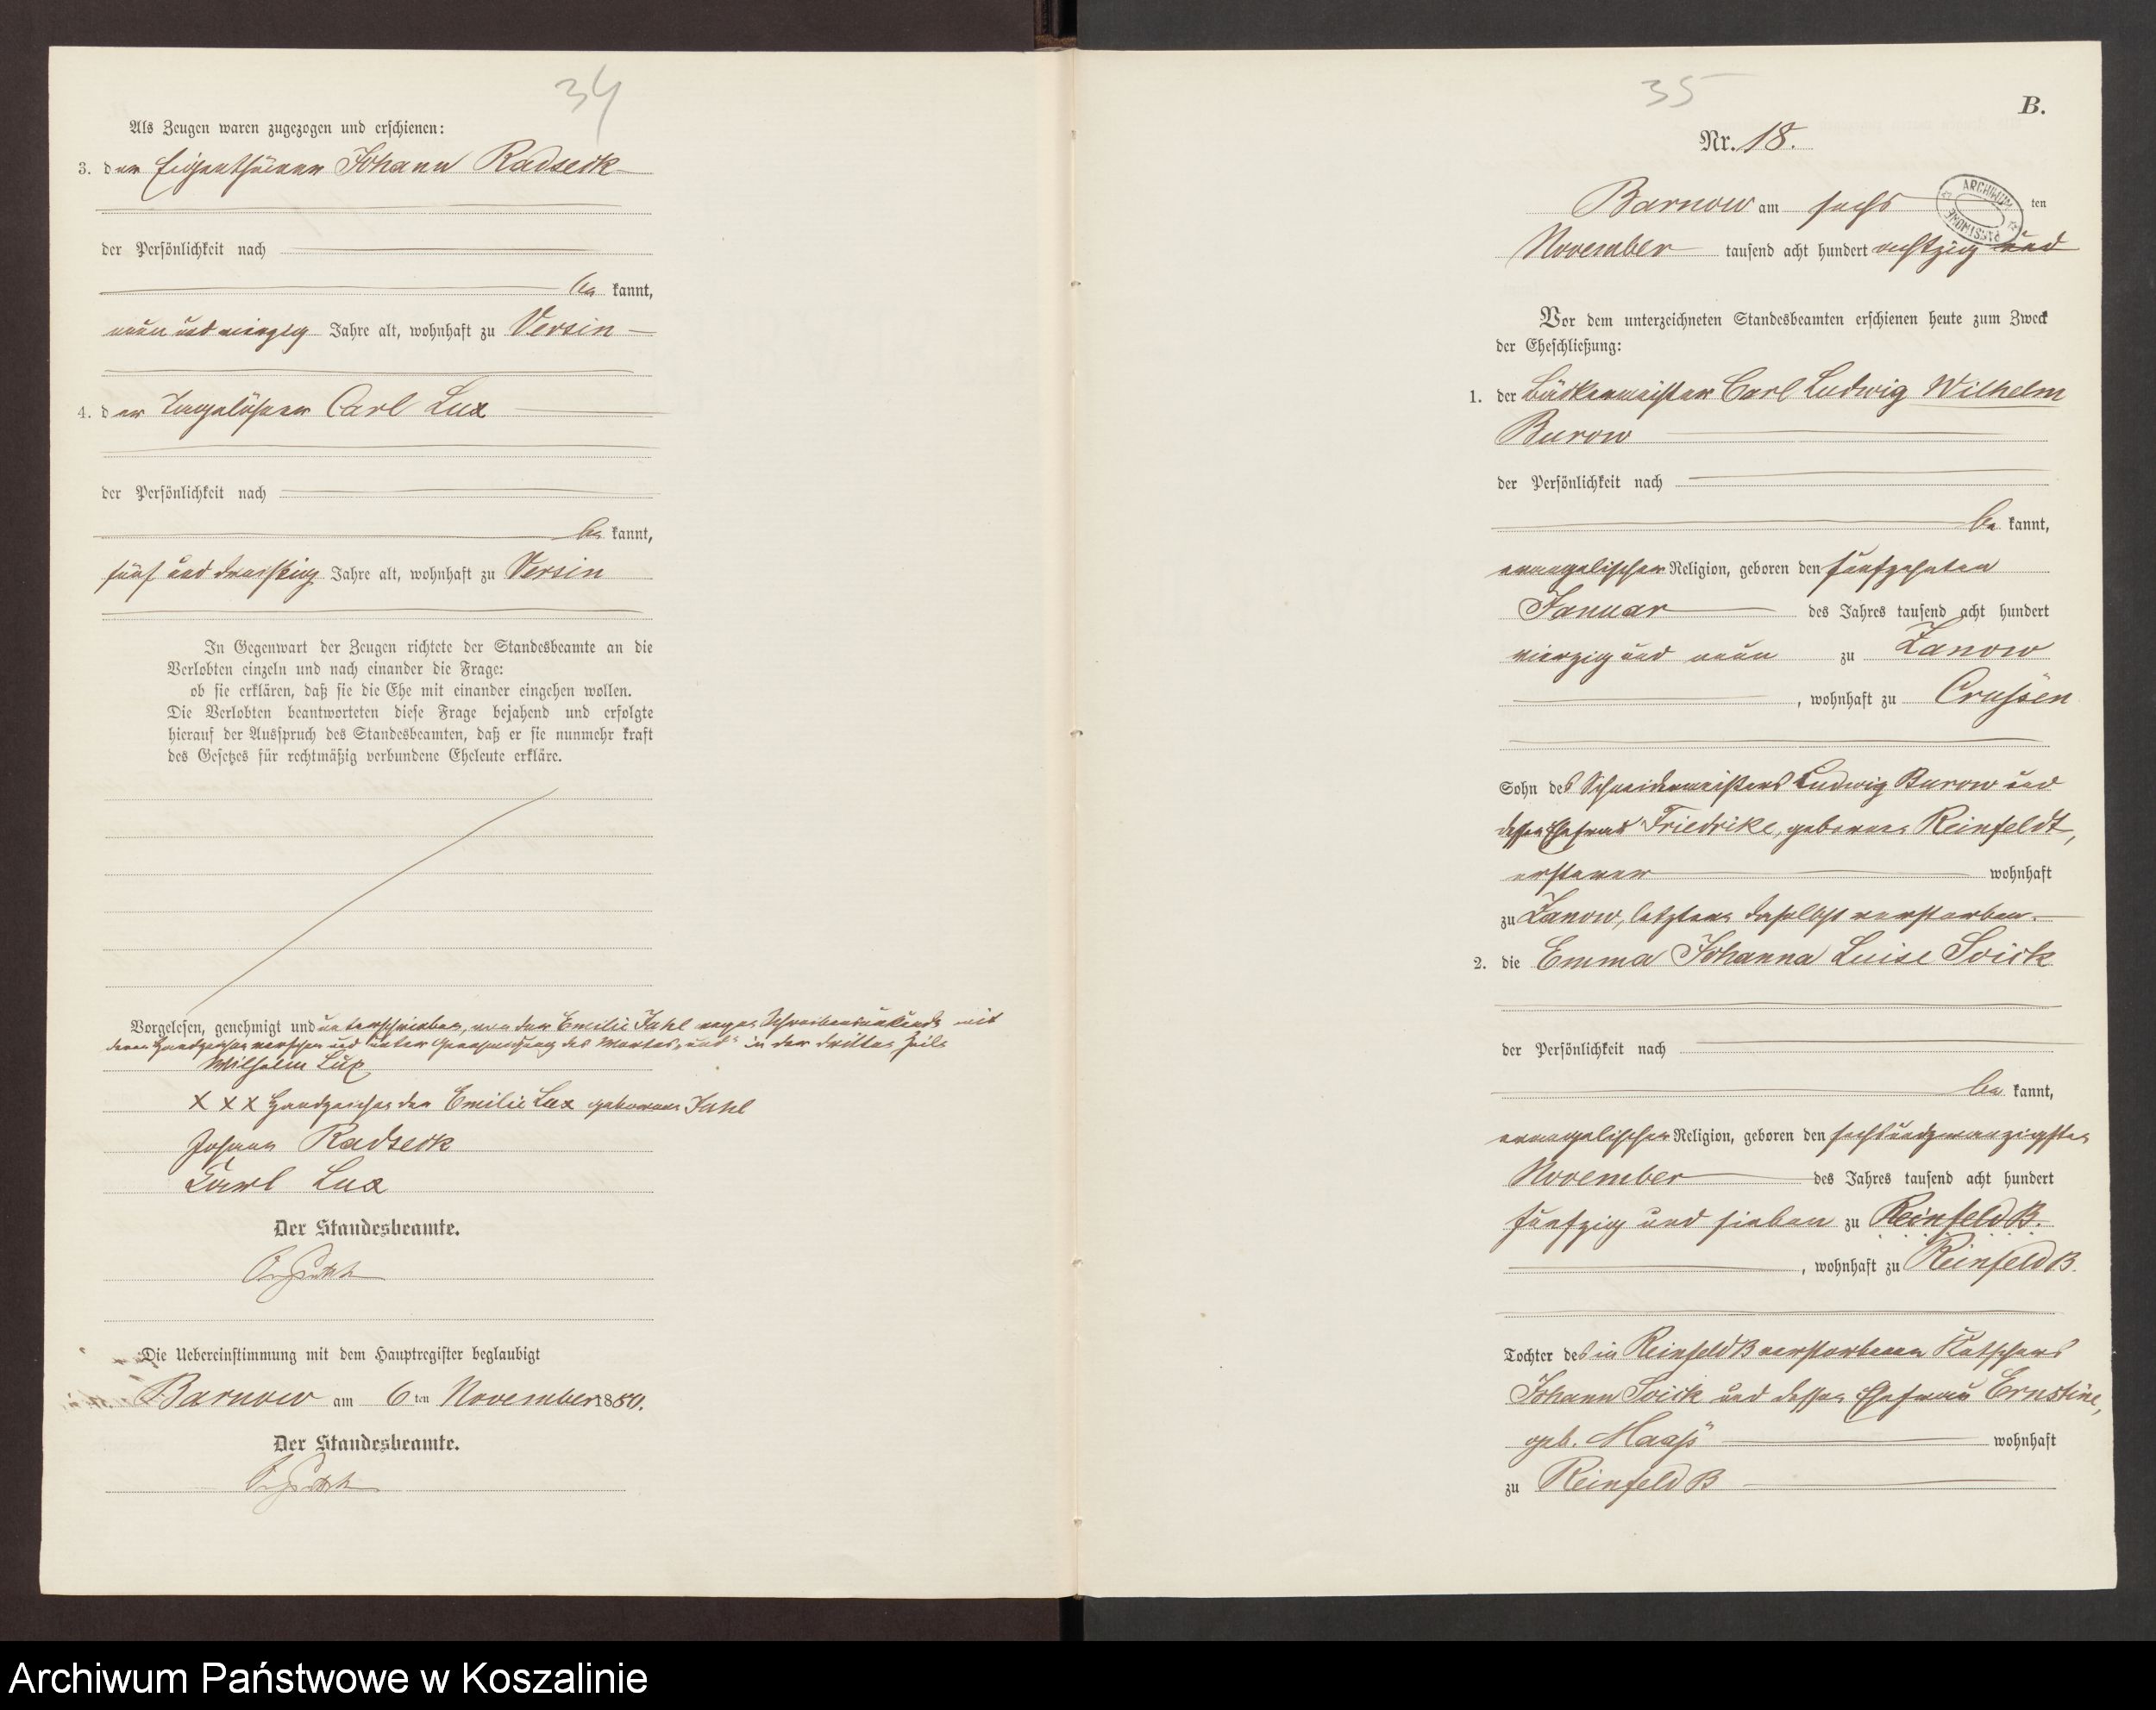 34
Als Zeugen waren zugezogen und erschienen:
3. der Eigenthümer Johann Radseck
der Persönlichkeit nach
be kannt,
neun und vierzig Jahre alt, wohnhaft zu Versin
4. der Tagelöhner Carl Lux
der Persönlichkeit nach
be kannt,
fünf und dreissig Jahre alt, wohnhaft zu Versin
In Gegenwart der Zeugen richtete der Standesbeamte an die
Verlobten einzeln und nach einander die Frage:
ob sie erklären, daß sie die Ehe mit einander eingehen wollen.
Die Verlobten beantworteten diese Frage bejahend und erfolgte
hierauf der Ausspruch des Standesbeamten, daß er sie nunmehr kraft
des Gesetzes für rechtmäßig verbundene Eheleute erkläre.
Vorgelesen, genehmigt und unterschrieben, von der Emilie Jahl wegen Schreibensunkunde mit
deren Handzeichen versehen und unter Genehmigung des Wortes „und“ in der dritten Zeile
Wilhelm Lux
X X X Handzeichen der Emilie Lux geborene Jahl
Johann Radseck
Karl Lux
Der Standesbeamte.
Die Uebereinstimmung mit dem Hauptregister beglaubigt
Barnow am 6ten November 1880.
Der Standesbeamte.
35
B.
Nr. 18.
Barnow am sechs ten
November tausend acht hundert achtzig und
ARCHIWUM PAŃSTWOWE
Vor dem unterzeichneten Standesbeamten erschienen heute zum Zweck
der Eheschließung:
1. der Bäckermeister Carl Ludwig Wilhelm
Burow
der Persönlichkeit nach
be kannt,
evangelischer Religion, geboren den fünfzehnten
Januar des Jahres tausend acht hundert
vierzig und neun zu Zanow
, wohnhaft zu Crussen
Sohn des Schneidermeisters Ludwig Burow und
dessen Ehefrau Friedrike, geborene Reinfeldt,
ersterer wohnhaft
zu Zanow, letztere daselbst verstorben.
2. die Emma Johanna Luise Soick
der Persönlichkeit nach
be kannt,
evangelischer Religion, geboren den sechsundzwanzigsten
November des Jahres tausend acht hundert
fünfzig und sieben zu Reinfeld B.
, wohnhaft zu Reinfeld B.
Tochter des in Reinfeld B verstorbenen Kutschers
Johann Soick und dessen Ehefrau Ernstine,
geb. Maaß wohnhaft
zu Reinfeld B
Archiwum Państwowe w Koszalinie